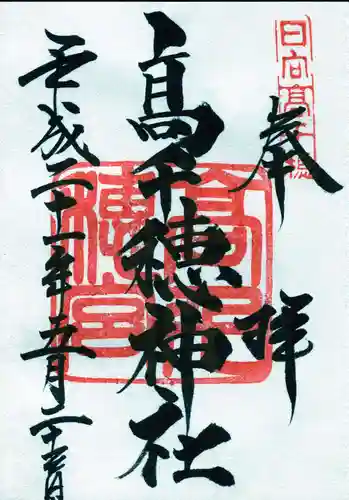 日向高千穂
奉拝
高千穂神社
高千穂宮
平成二十一年五月二十六日